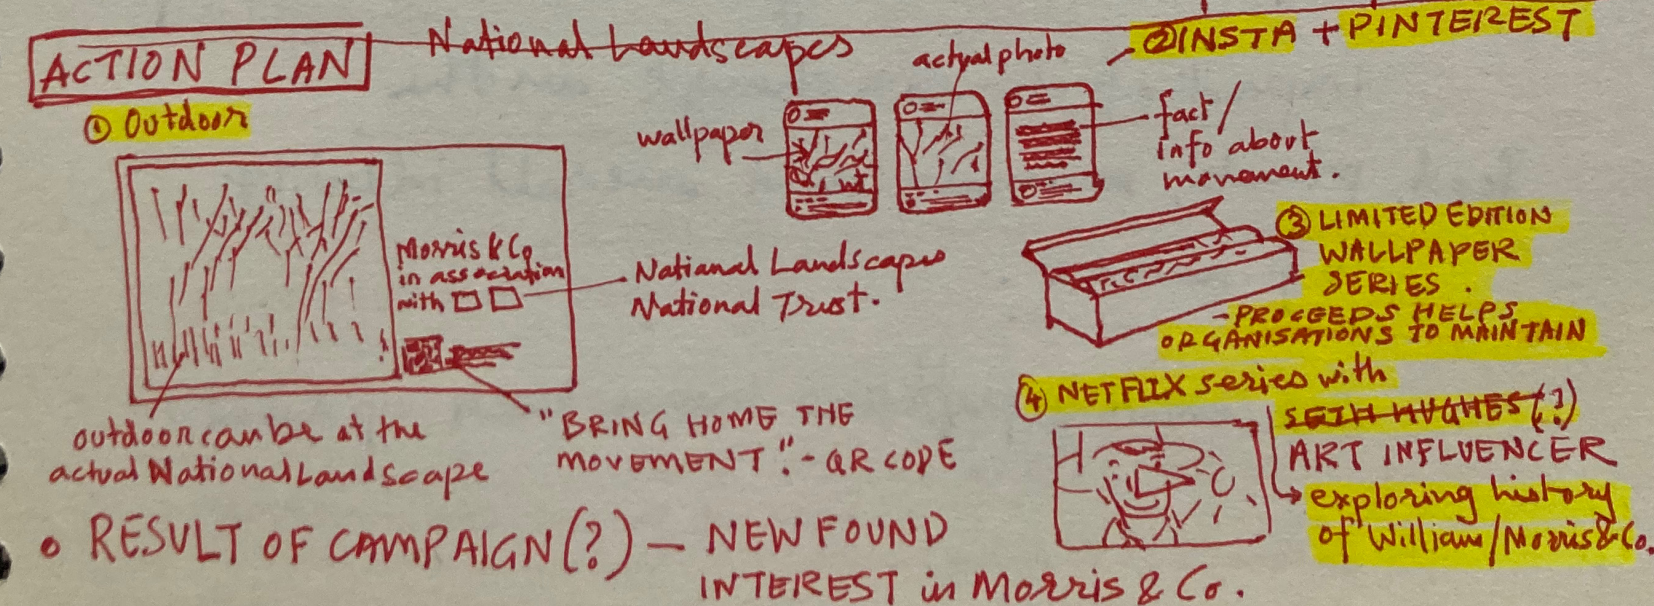 ACTION PLAN
National Landscapes
① Outdoor
Morris & Co
in association
with
National Landscapes
National Trust.
outdoor can be at the
actual National Landscape
"BRING HOME THE
MOVEMENT." - QR CODE
② INSTA + PINTEREST
actual photo
wallpaper
fact /
info about
movement.
③ LIMITED EDITION
WALLPAPER
SERIES.
- PROCEEDS HELPS
ORGANISATIONS TO MAINTAIN
④ NETFLIX series with
SETH HUGHES (?)
ART INFLUENCER
exploring history
of William/Morris & Co.
• RESULT OF CAMPAIGN (?) — NEW FOUND
INTEREST in Morris & Co.